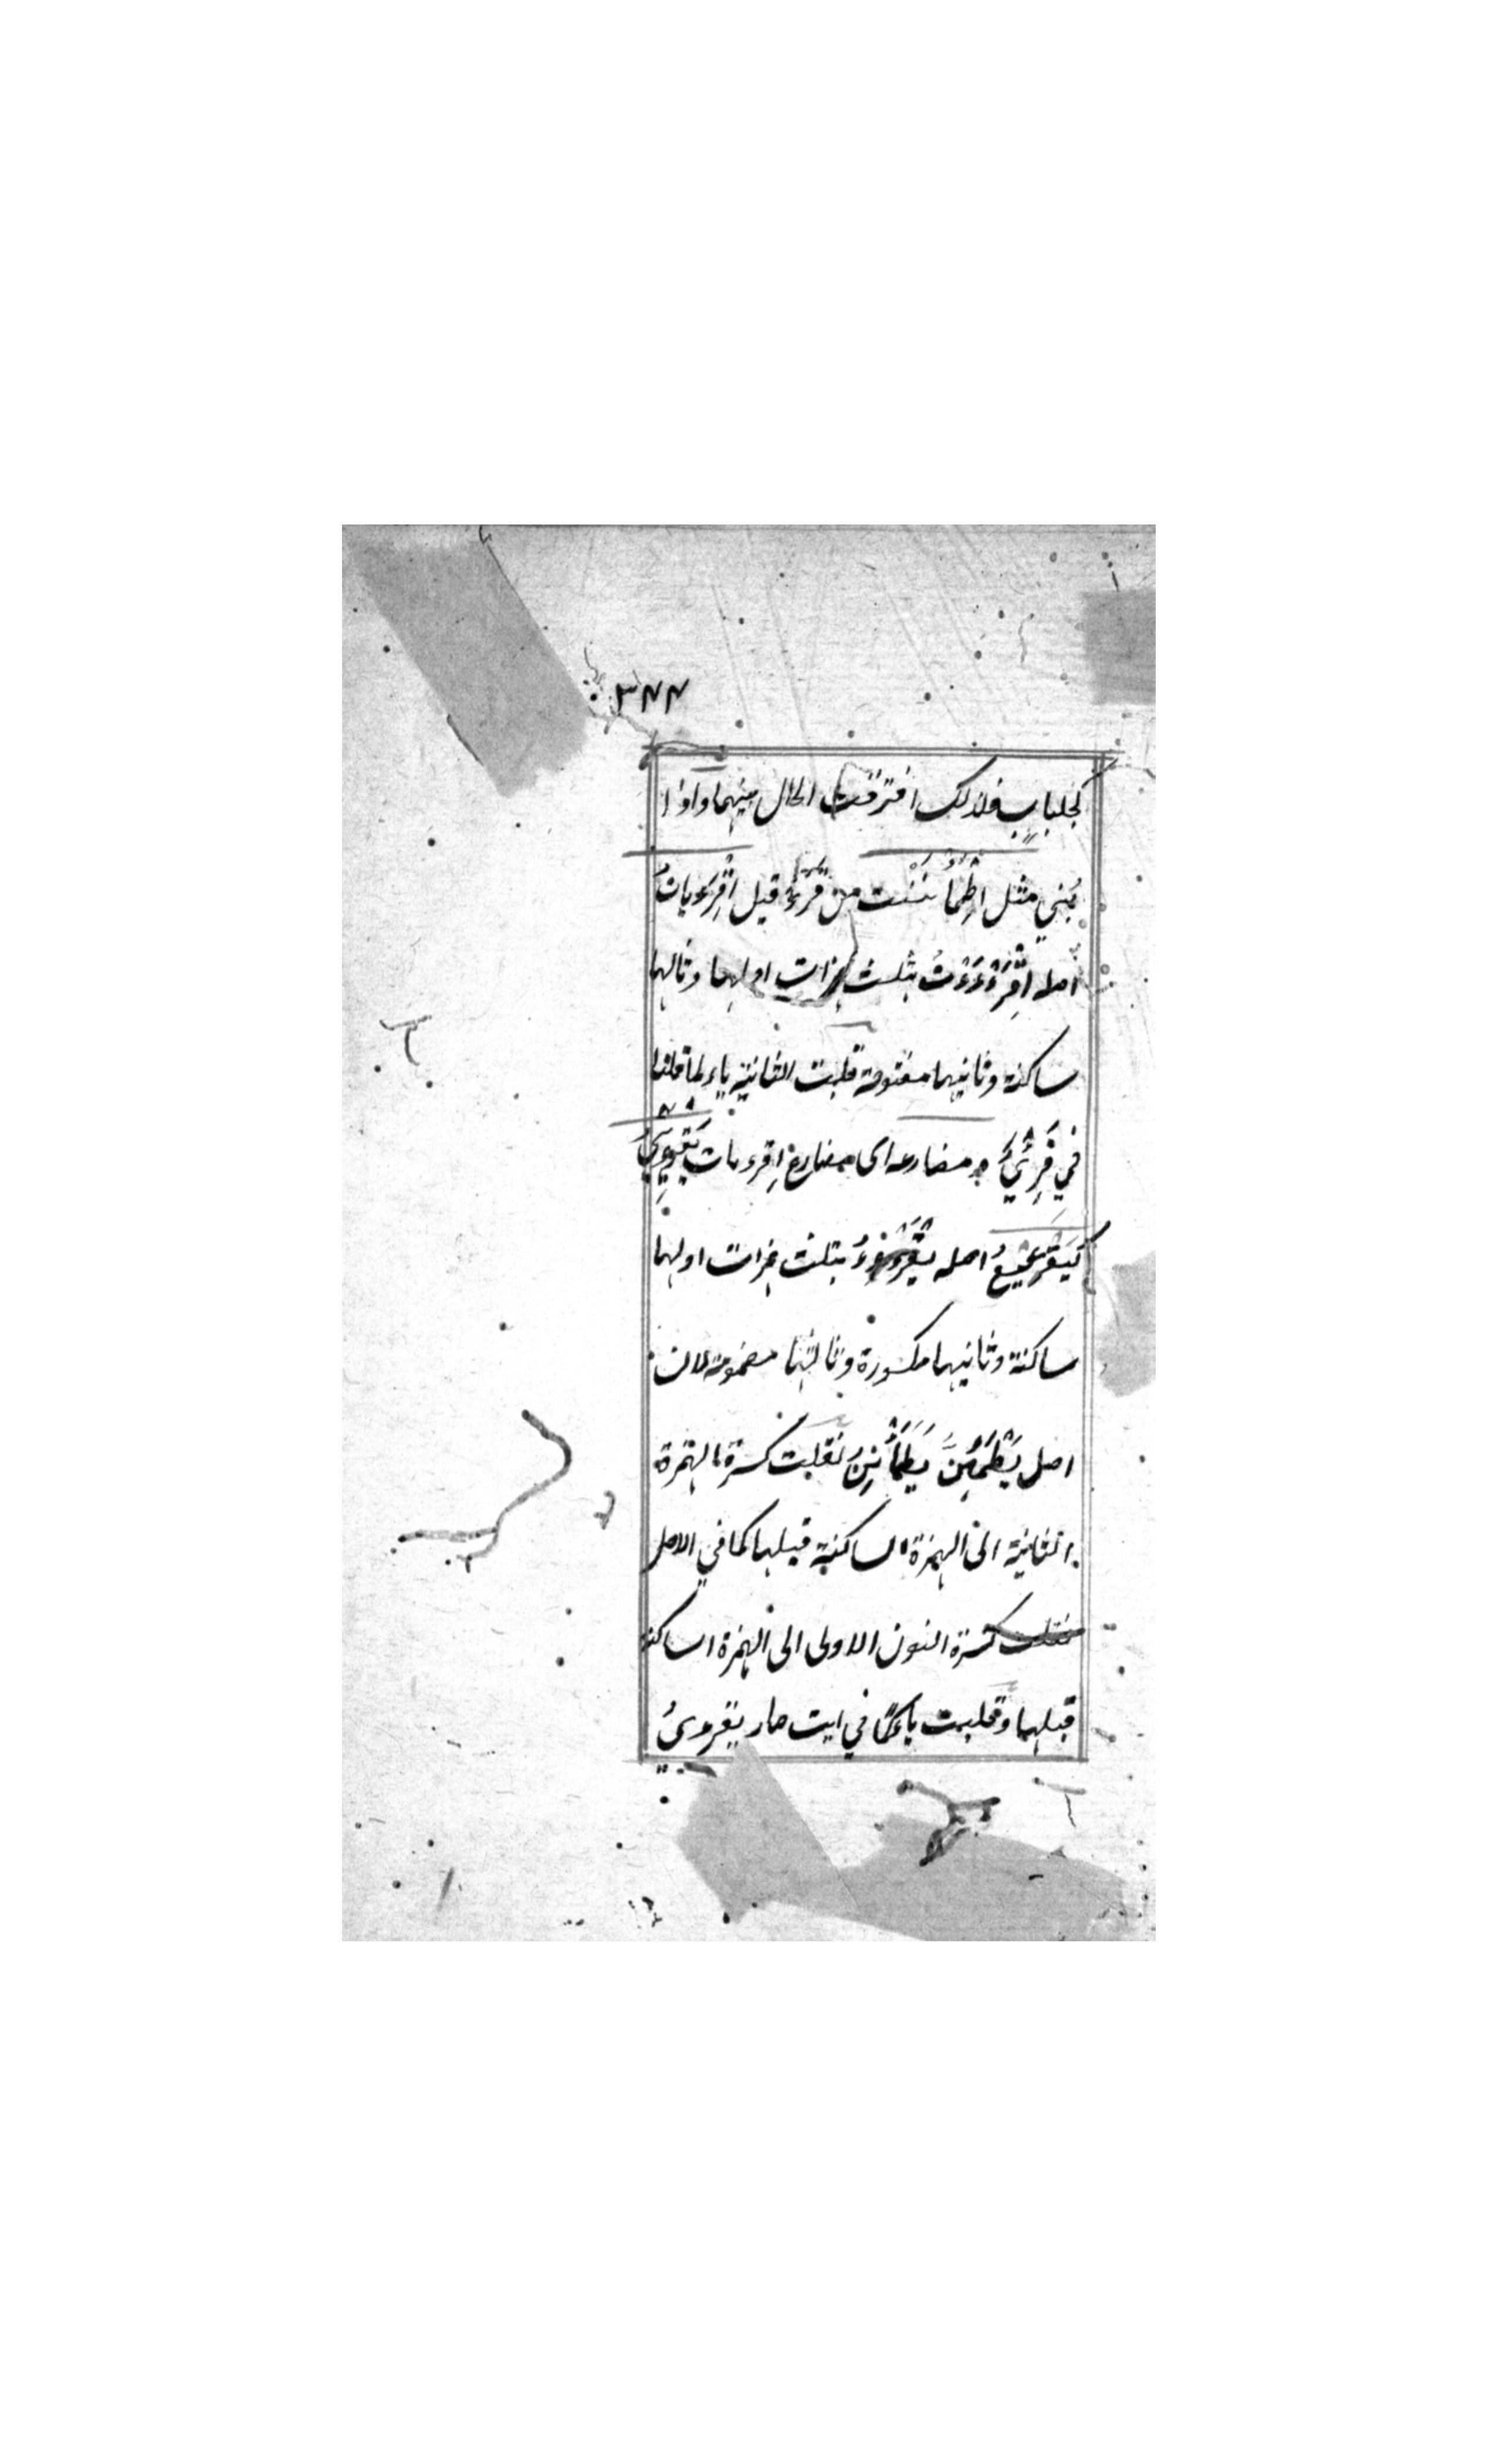 ٣٤٤
كجلباب فلذلك افترقت الحال بينهما واذا
بُني مثل اطْمَأْنَنْت من قَرَءَ قيل اقْرَءْيات
اصله اقْرَءْءَءْتُ بثلث همزات اولهما وثالهما
ساكنة وثانيهما مفتوحة قلبت الثانية ياء لما قلنا
في قَرَءْيٌ و مضارعه اى مضارع اقرءيات يَقْرَءْيِيُ
كيَقْرَعْيِعُ اصله يقْرَءْءِءُ بثلث همزات اولهما
ساكنة وثانيهما مكسورة وثالثهما مضمومة لان
اصل يَطْمَئِنَّ يَطْمَأْنِنُ نقلبت كسرة الهمزة
الثانية الى الهمزة الساكنة قبلها كما في الاصل
نقلت كسرة النون الاولى الى الهمزة الساكنة
قبلهما وقلبت ياء كما في ايت صار يقرءيُ